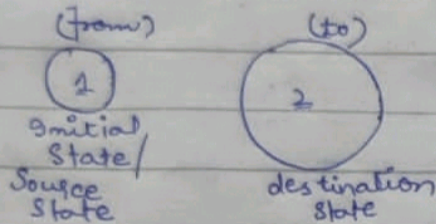 (from) (to)
1 2
Initial
State/
Source
State
destination
State